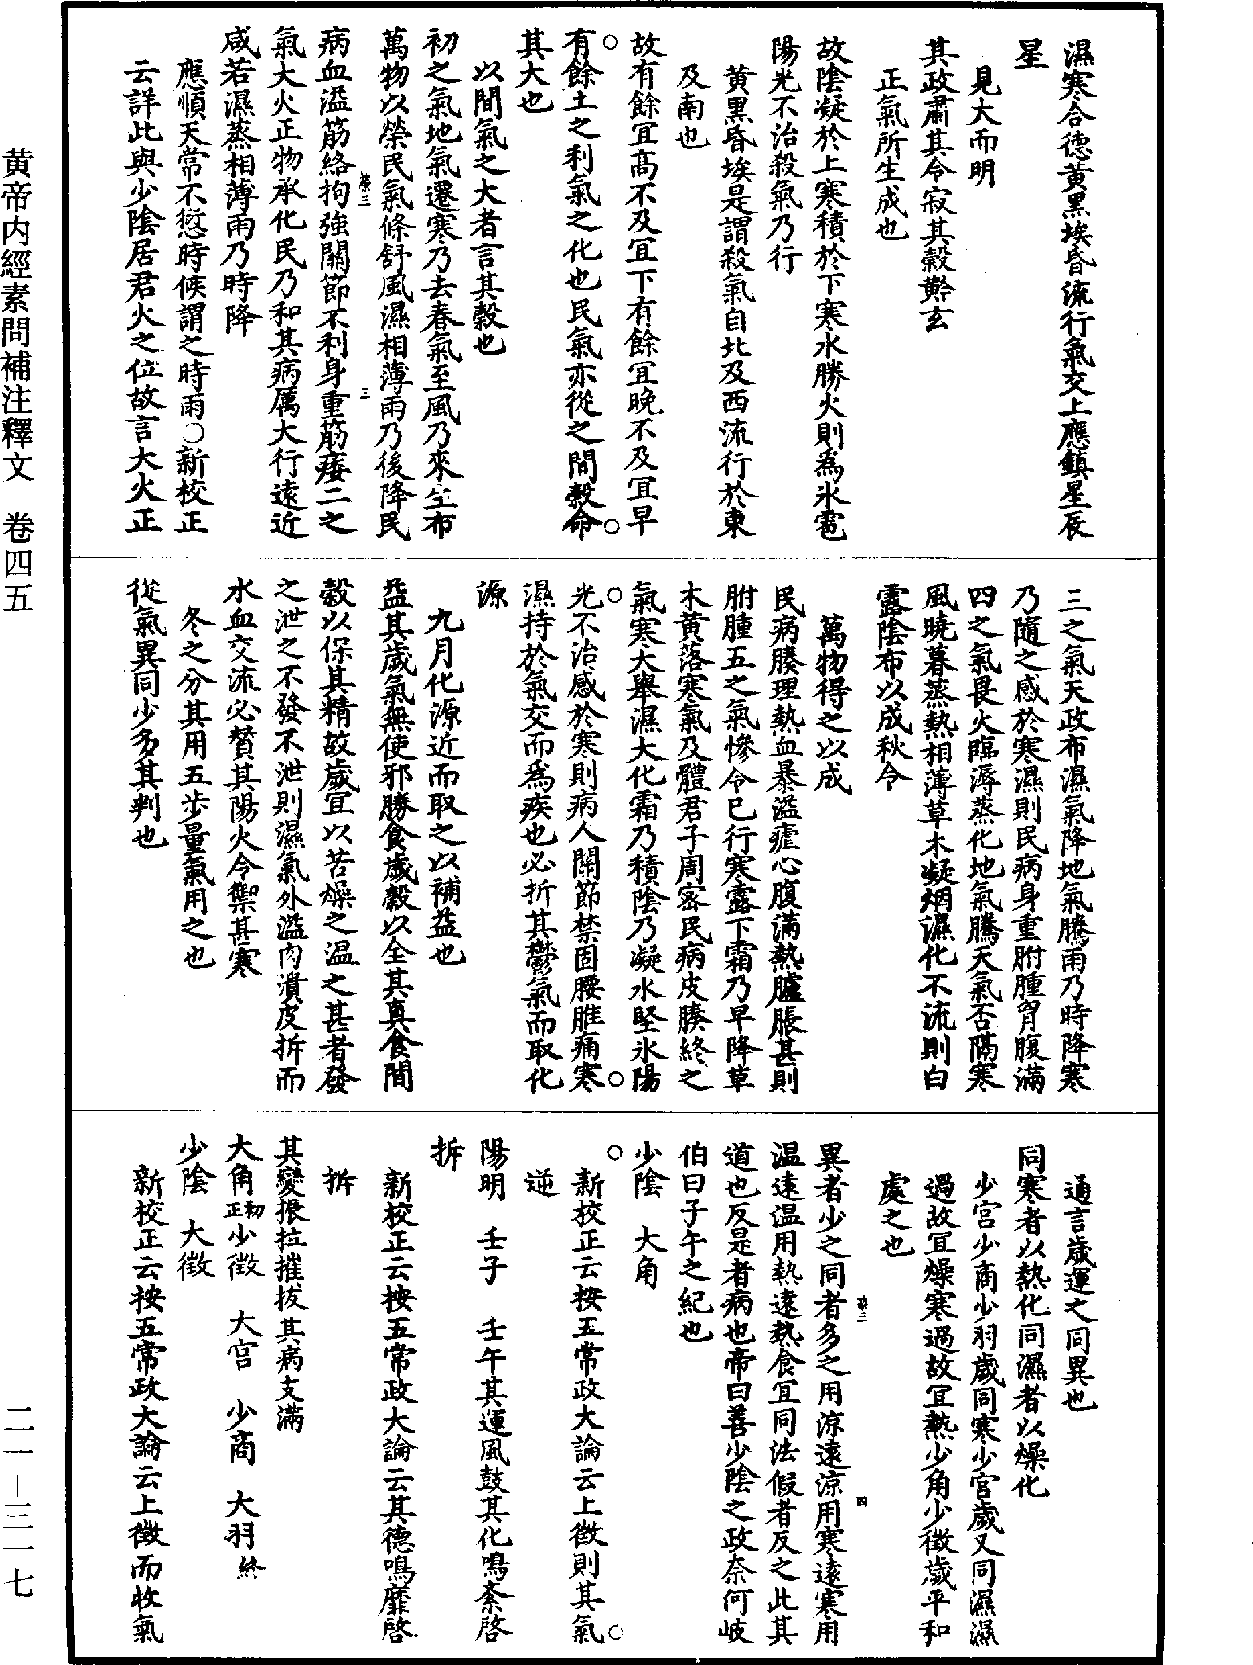 濕寒合德黃黑埃昏流行氣交上應鎮星辰
星
見大而明
其政肅其令寂其穀黅玄
正氣所生成也
故陰凝於上寒積於下寒水勝火則為氷雹
陽光不治殺氣乃行
黃黑昏埃是謂殺氣自北及西流行於東
及南也
故有餘宜高不及宜下有餘宜晚不及宜早
有餘土之利氣之化也民氣亦從之間穀命
其大也
以間氣之大者言其穀也
初之氣地氣遷寒乃去春氣至風乃來生布
萬物以榮民氣條舒風濕相薄雨乃後降民
病血溢筋絡拘強關節不利身重筋痿二之
氣大火正物承化民乃和其病厲大行遠近
咸若濕蒸相薄雨乃時降
應順天常不愆時候謂之時雨○新校正
云詳此與少陰居君火之位故言大火正
三之氣天政布濕氣降地氣騰雨乃時降寒
乃隨之感於寒濕則民病身重胕腫胷腹滿
四之氣畏火臨溽蒸化地氣騰天氣否隔寒
風曉暮蒸熱相薄草木凝烟濕化不流則白
露陰布以成秋令
萬物得之以成
民病腠理熱血暴溢瘧心腹滿熱臚脹甚則
胕腫五之氣慘令已行寒露下霜乃早降草
木黃落寒氣及體君子周密民病皮腠終之
氣寒大舉濕大化霜乃積陰乃凝水堅氷陽
光不治感於寒則病人關節禁固腰脽痛寒
濕持於氣交而為疾也必折其鬱氣而取化
源
九月化源近而取之以補益也
益其歲氣無使邪勝食歲穀以全其真食間
穀以保其精故歲宜以苦燥之溫之甚者發
之泄之不發不泄則濕氣外溢肉潰皮拆而
水血交流必賛其陽火令禦甚寒
冬之分其用五步量氣用之也
從氣異同少多其判也
通言歲運之同異也
同寒者以熱化同濕者以燥化
少宮少商少羽歲同寒少宮歲又同濕濕
過故宜燥寒過故宜熱少角少徵歲平和
處之也
異者少之同者多之用涼遠涼用寒遠寒用
溫遠溫用熱遠熱食宜同法假者反之此其
道也反是者病也帝曰善少陰之政柰何岐
伯曰子午之紀也
少陰　大角
新校正云按五常政大論云上徵則其氣
逆
陽明　壬子　壬午其運風鼓其化鳴紊啓
拆
新校正云按五常政大論云其德鳴靡啓
拆
其變振拉摧拔其病支滿
大角初正少徵　大宮　少商　大羽終
少陰　大徵
新校正云按五常政大論云上徵而收氣
黃帝内經素問補注釋文　卷四五
二一－三一七